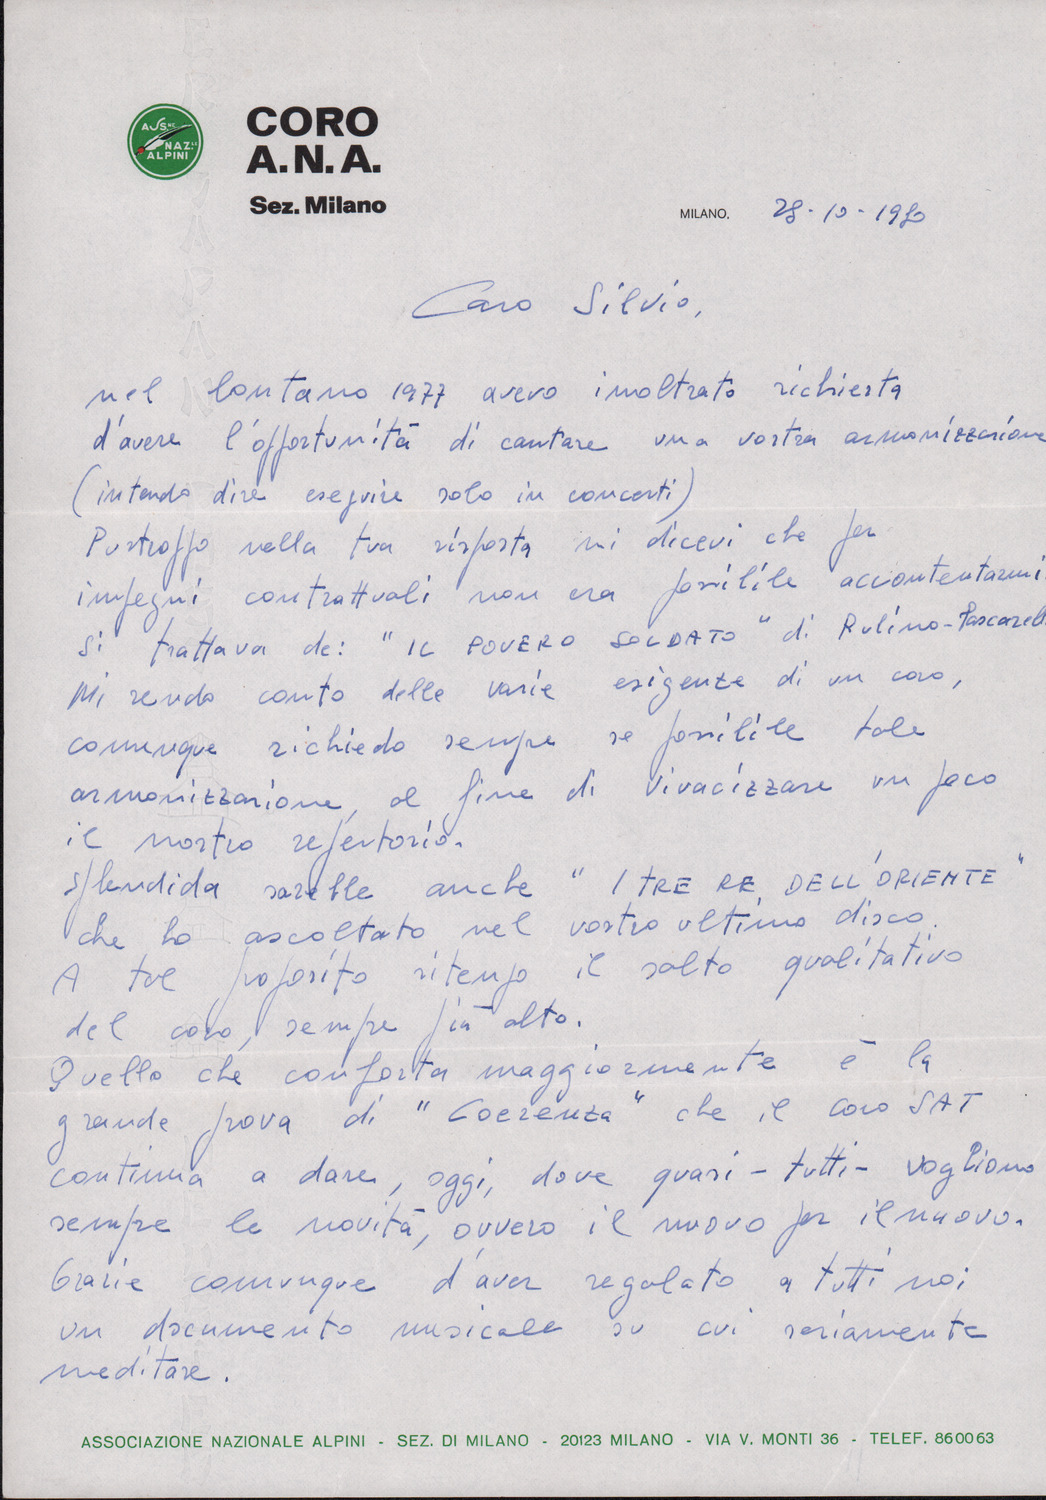 ASS.NE
NAZ.LE
ALPINI
CORO
A.N.A.
Sez. Milano
MILANO, 28-10-1980
Caro Silvio,
nel lontano 1977 avevo inoltrato richiesta
d'avere l'opportunità di cantare una vostra armonizzazione
(intendo dire eseguire solo in concerti)
Purtroppo nella tua risposta mi dicevi che per
impegni contrattuali non era possibile accontentarmi.
Si trattava de: "IL POVERO SOLDATO" di Pulino-Pascarell
Mi rendo conto delle varie esigenze di un coro,
comunque richiedo sempre se possibile tale
armonizzazione, al fine di vivacizzare un poco
il nostro repertorio.
Splendida sarebbe anche "I TRE RE DELL'ORIENTE"
che ho ascoltato nel vostro ultimo disco.
A tal proposito ritengo il salto qualitativo
del coro, sempre più alto.
Quello che conforta maggiormente è la
grande prova di "Coerenza" che il coro SAT
continua a dare, oggi, dove quasi - tutti - vogliono
sempre le novità, ovvero il nuovo per il nuovo.
Grazie comunque d'aver regalato a tutti noi
un documento musicale su cui seriamente
meditare.
ASSOCIAZIONE NAZIONALE ALPINI - SEZ. DI MILANO - 20123 MILANO - VIA V. MONTI 36 - TELEF. 860063